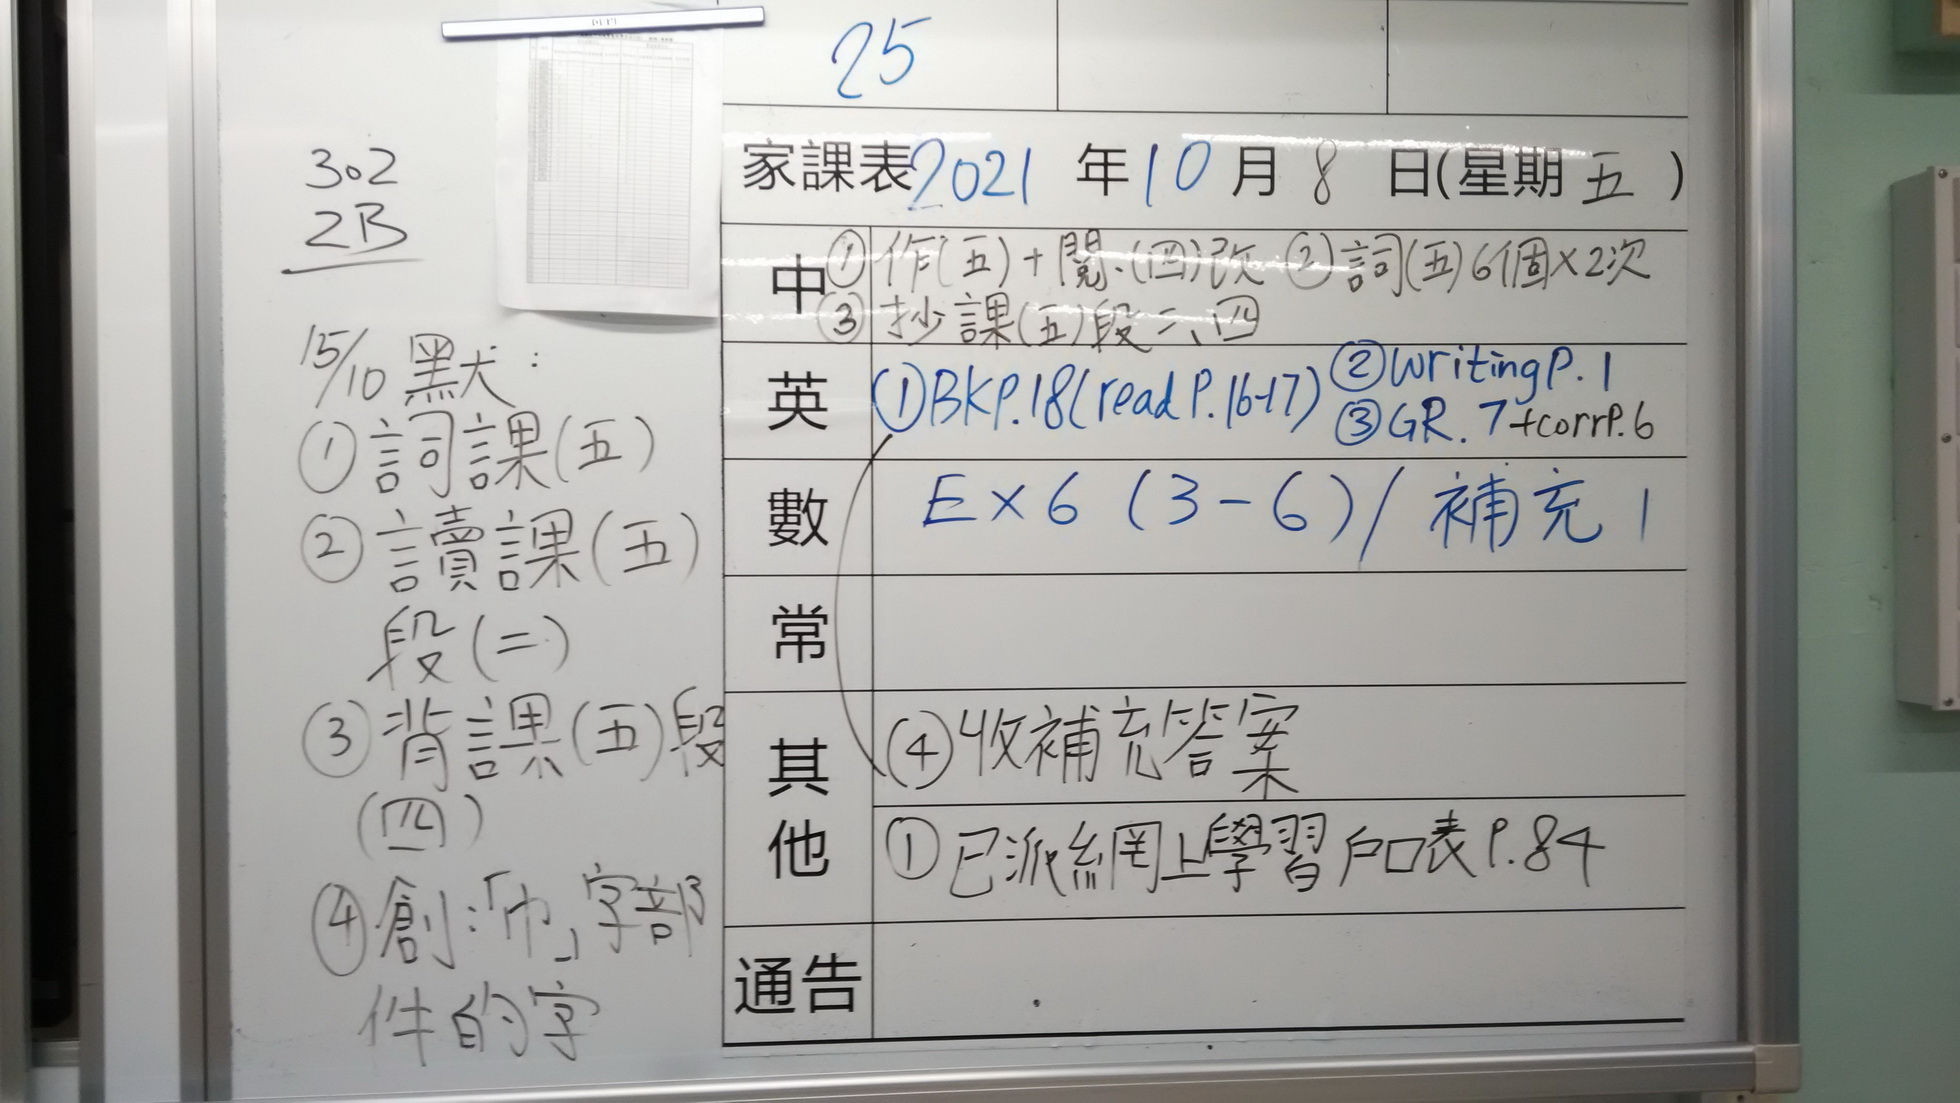 25
302
2B
15/10 默:
① 詞課(五)
② 讀課(五)
段(二)
③ 背課(五)段
(四)
④ 創:「巾」字部
件的字
家課表 2021 年 10 月 8 日(星期 五 )
中 ① 作(五)+閱.(四)改 ② 詞(五)6個×2次
③ 抄課(五)段二、四
英 ① BKP.18(read P.16-17) ② Writing P.1
③ GR.7+corrP.6
數 EX 6 (3-6)/ 補充 1
常
其他 ④ 收補充答案
① 已派網上學習戶口表 P.84
通告